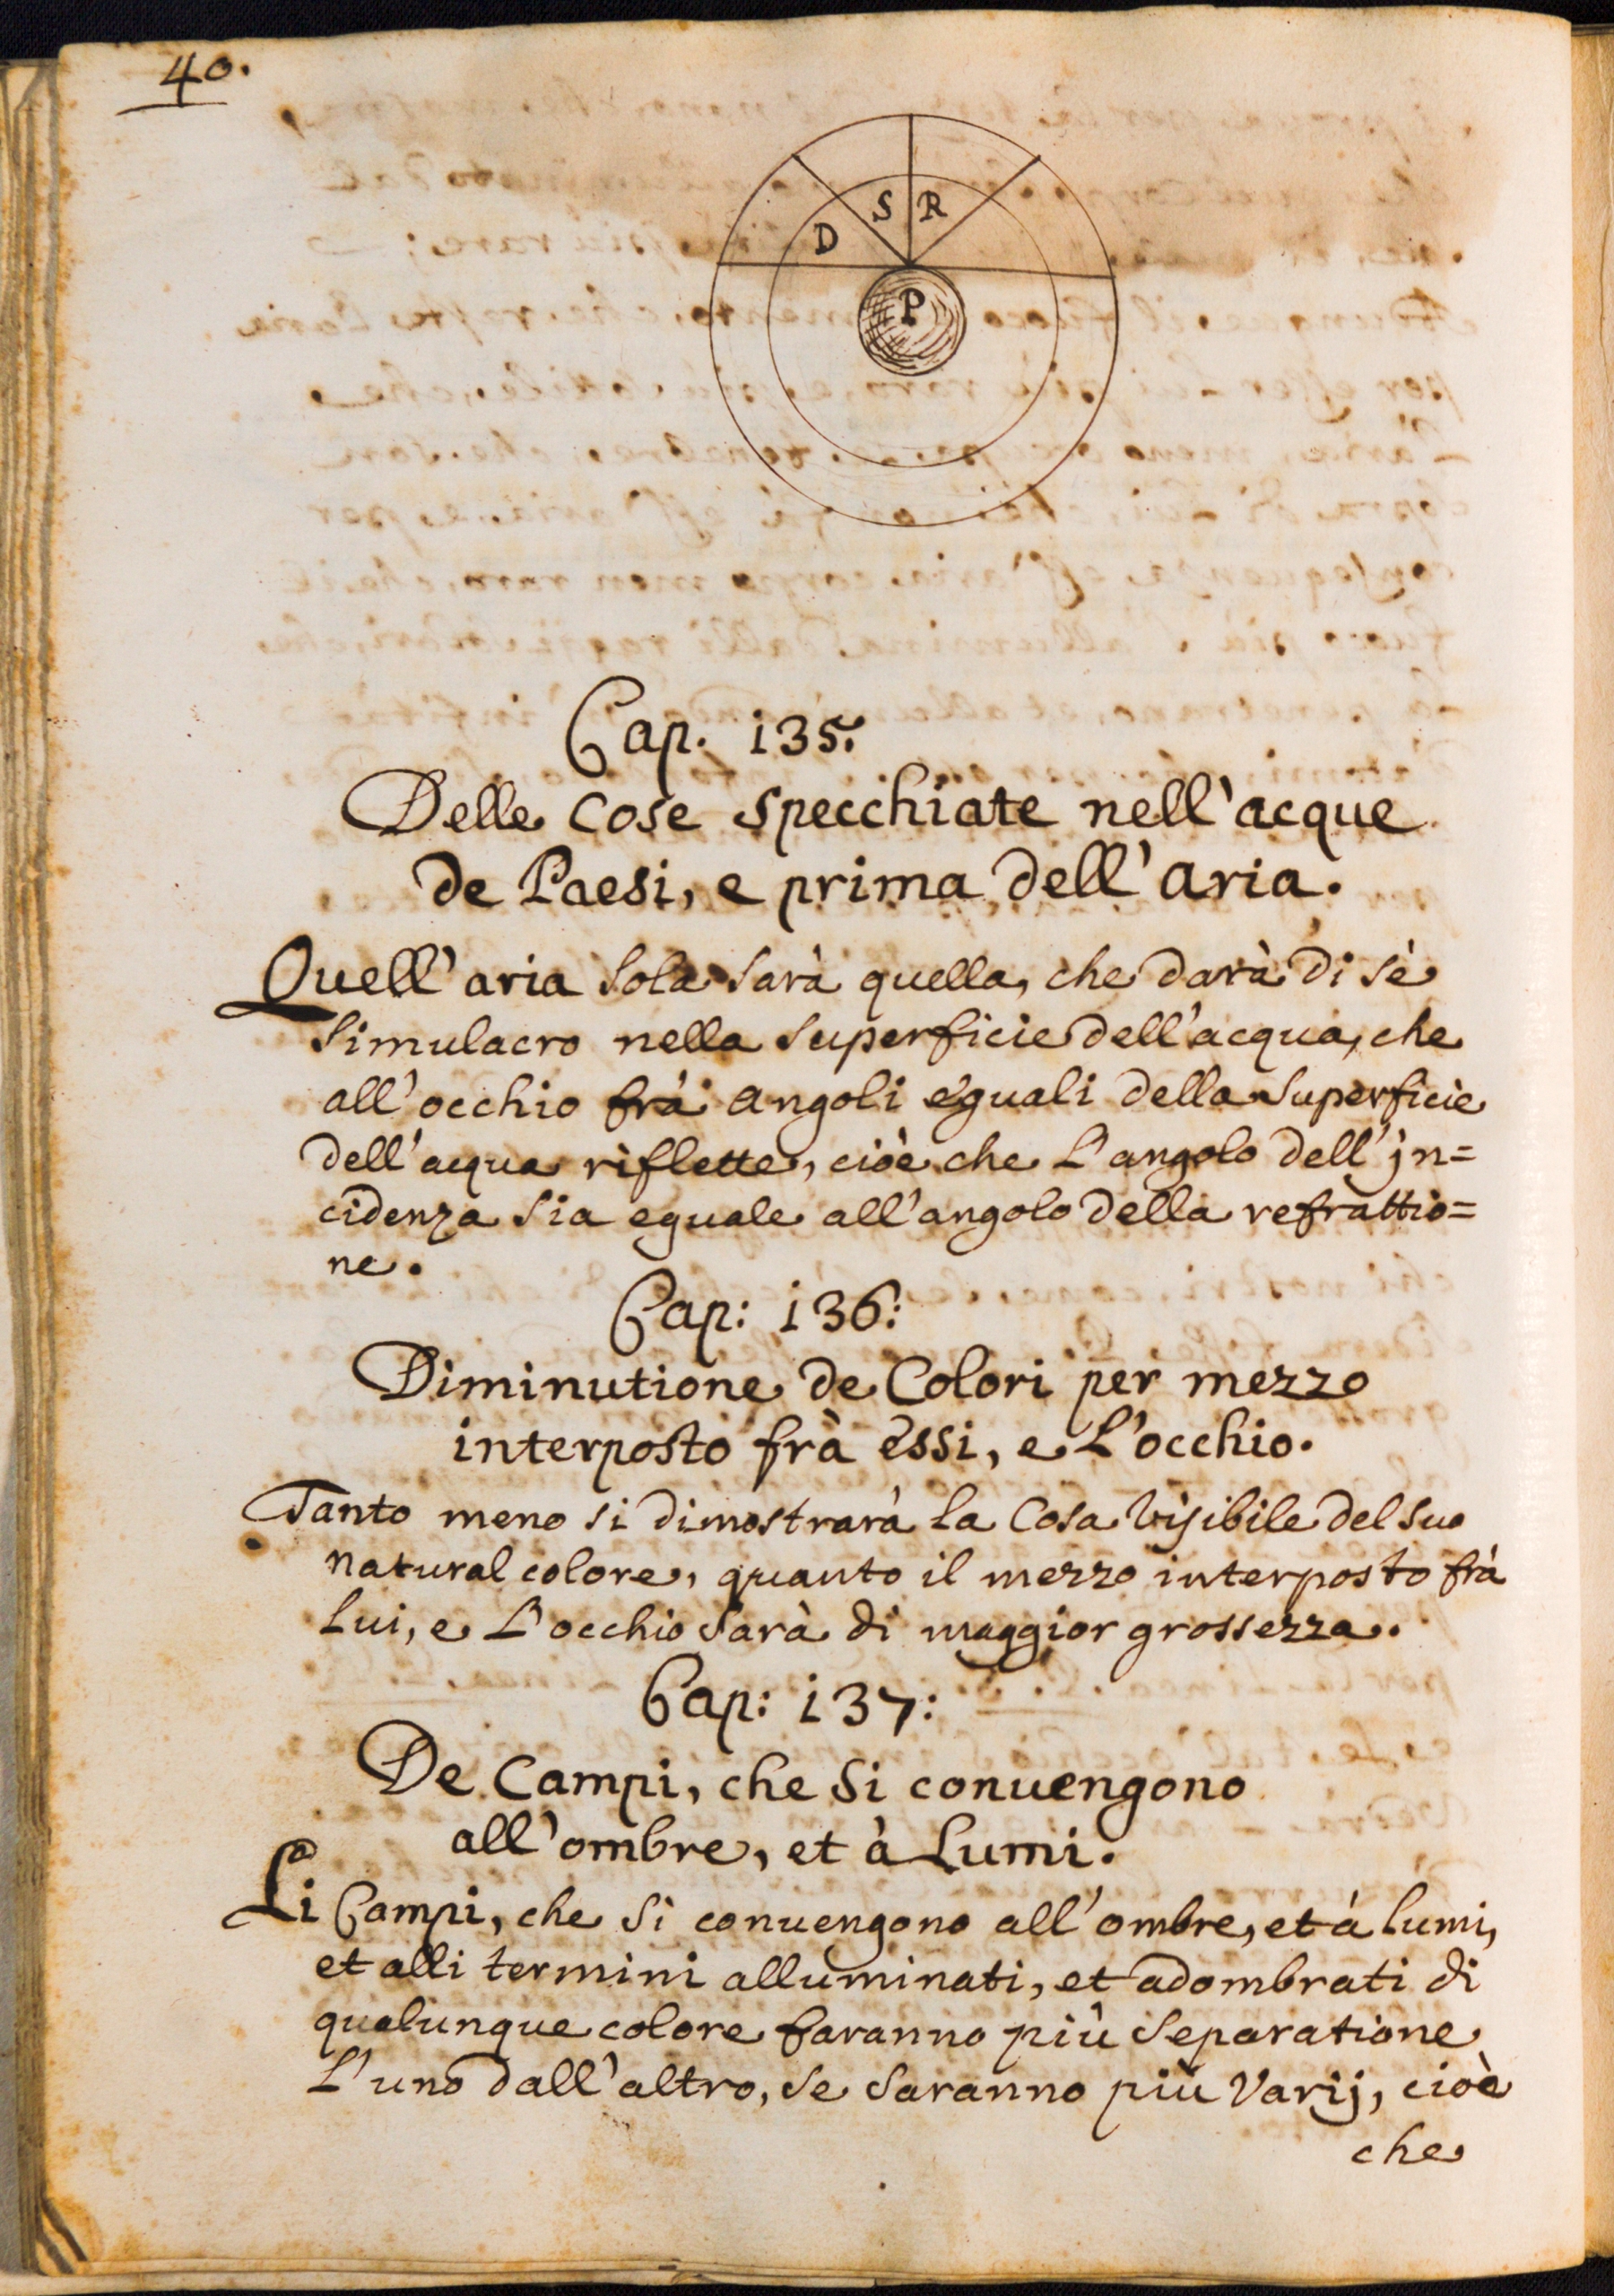 40.
S R
D
P
Cap. 135.
Delle Cose specchiate nell'acque
de Paesi, e prima dell'aria.
Quell'aria sola sarà quella, che darà di sè
simulacro nella superficie dell'acqua, che
all'occhio frà angoli eguali della superficie
dell'acqua riflette, cioè che l'angolo dell'jn=
cidenza sia eguale all'angolo della refrattio=
ne.
Cap: 136:
Diminutione de Colori per mezzo
interposto frà essi, e l'occhio.
Tanto meno si dimostrarà la Cosa visibile del suo
natural colore, quanto il mezzo interposto frà
lui, e l'occhio sarà di maggior grossezza.
Cap: 137:
De Campi, che si conuengono
all'ombre, et à Lumi.
Li Campi, che si conuengono all'ombre, et à lumi,
et alli termini alluminati, et adombrati di
qualunque colore faranno più separatione
l'uno dall'altro, se saranno più varij, cioè
che